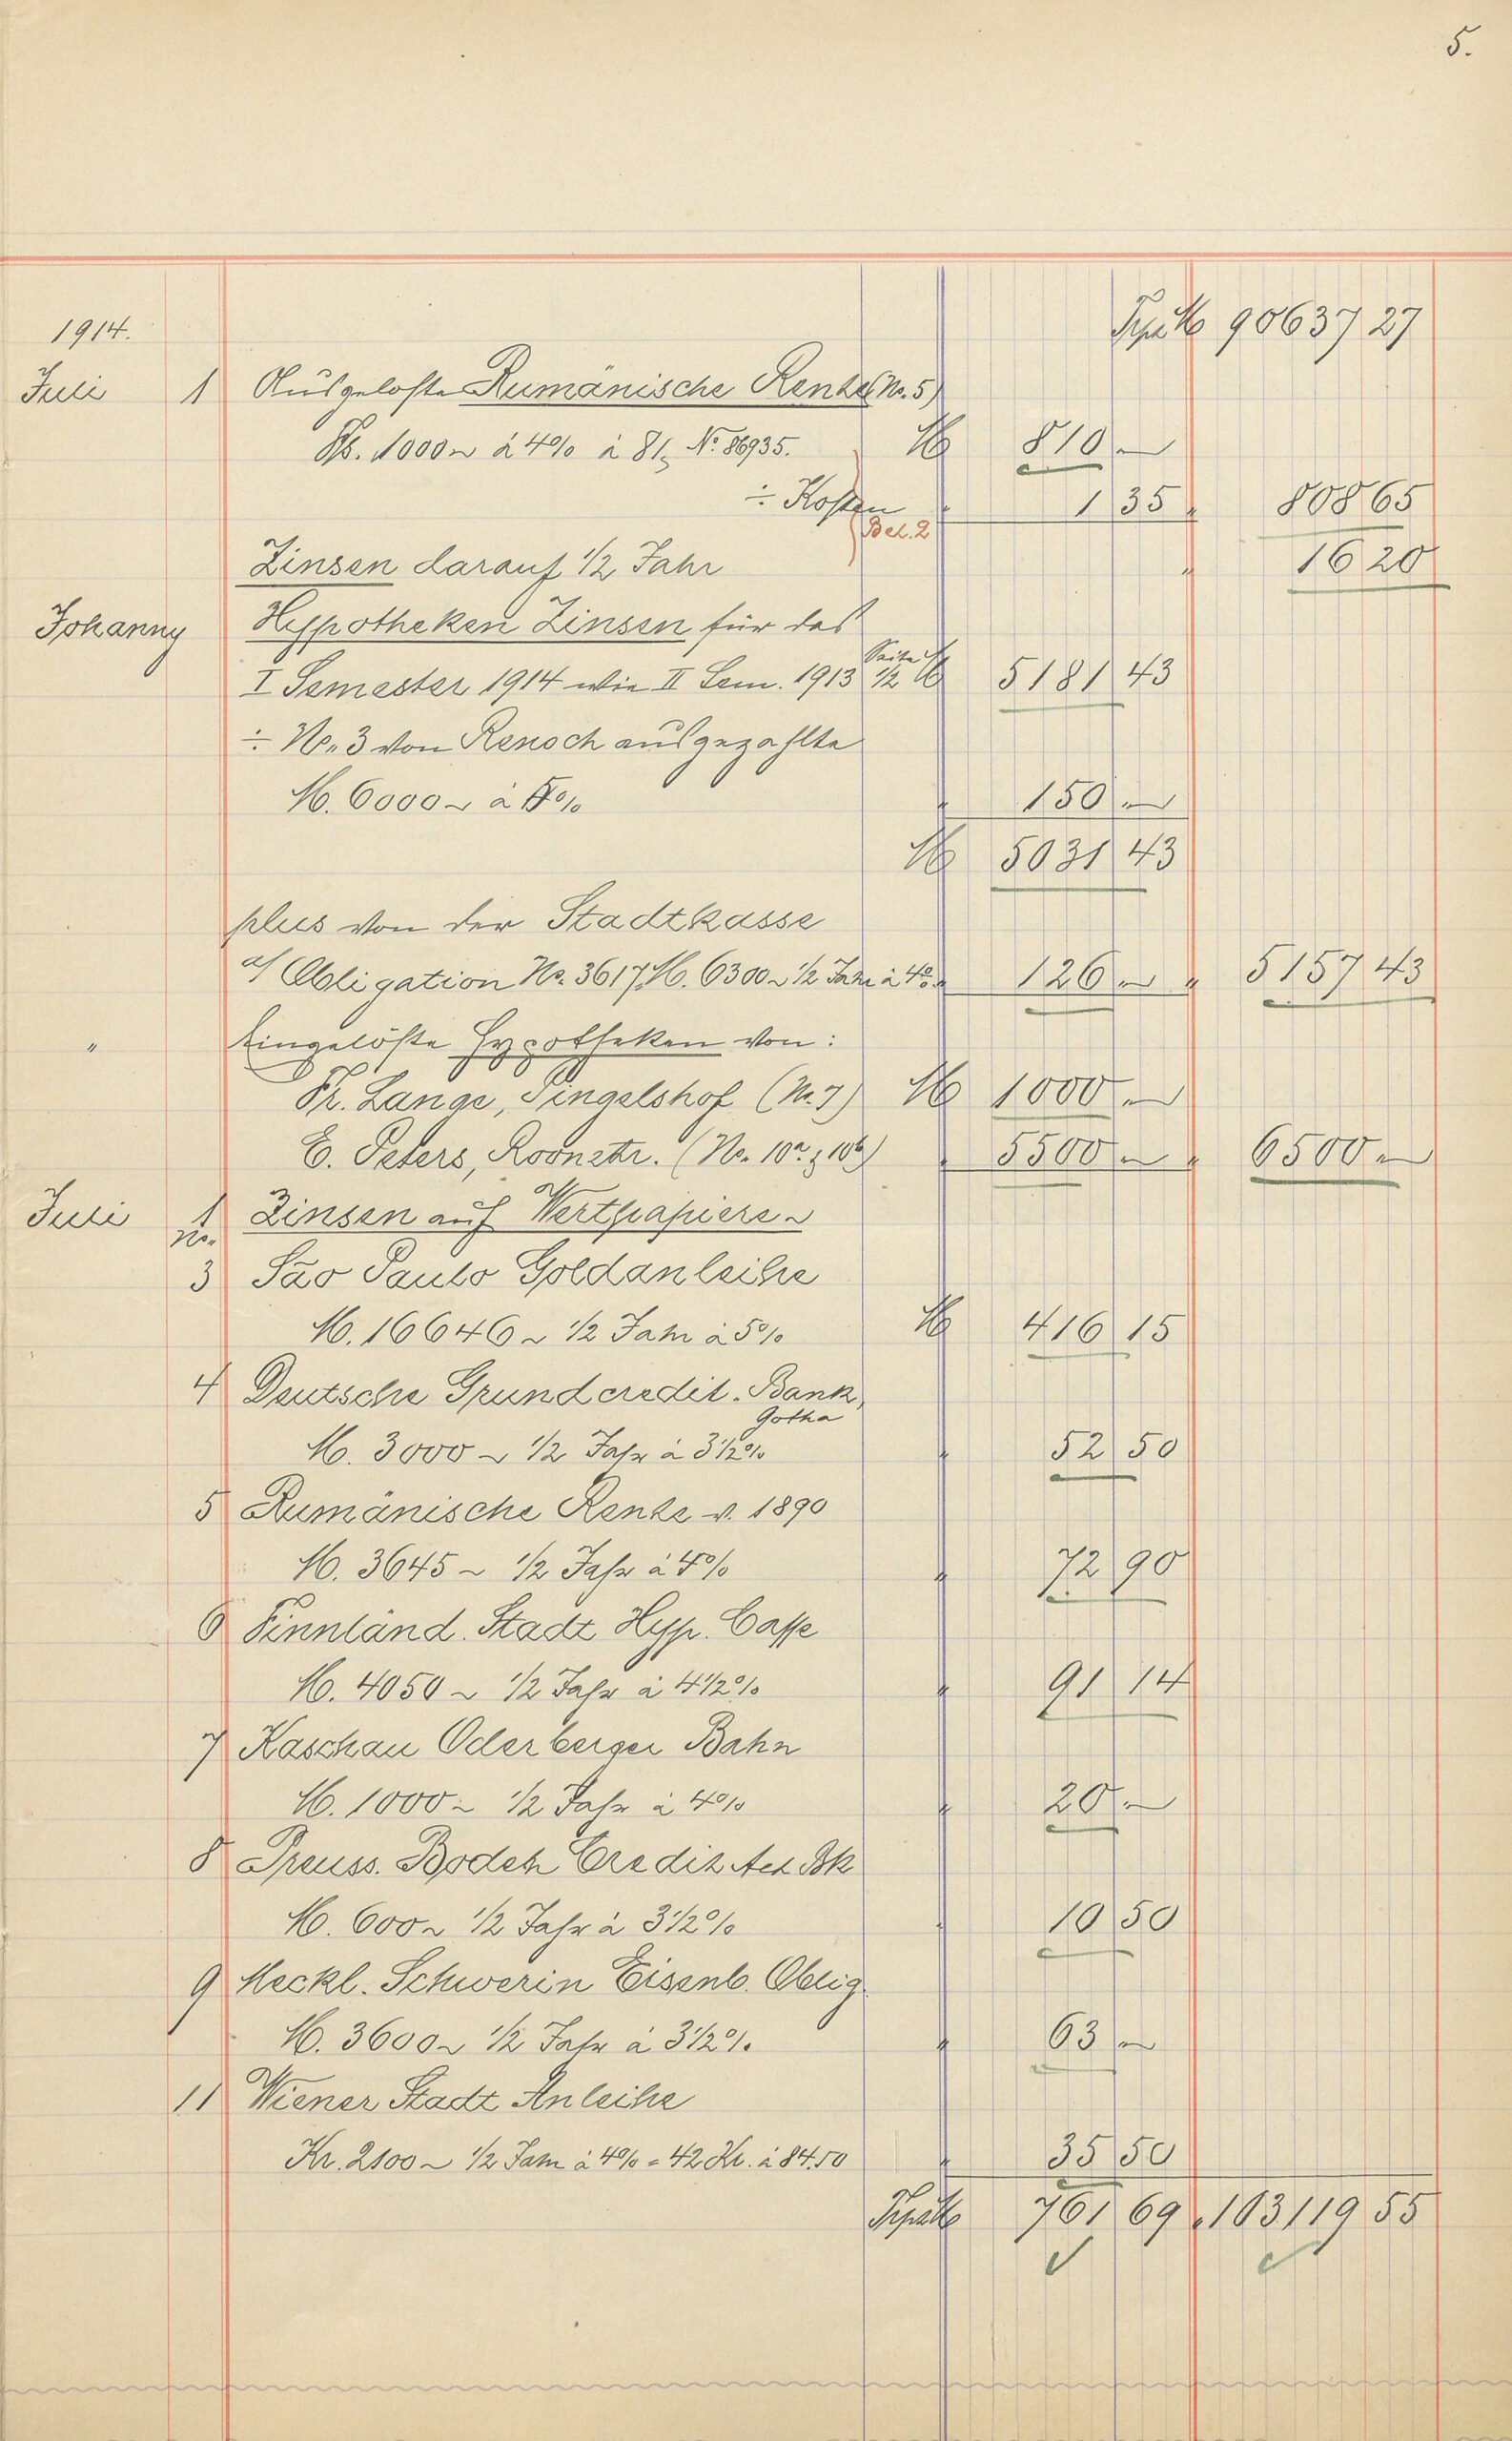 5.
Transp. M 90637 27
1914.
Juli 1 Ausgeloste Rumänische Rente (No. 5)
Fs. 1000 ~ à 4% à 81, No. 86935. M 810 —
÷ Kosten " 1 35 " 808 65
Bel. 2
Zinsen darauf 1/2 Jahr " 16 20
Johanny Hypotheken Zinsen für das
I Semester 1914 wie II Sem. 1913 Seite 1/2 M 5181 43
÷ No. 3 von Renoch ausgezahlte
M. 6000 ~ à 5% " 150 —
M 5031 43
plus von der Stadtkasse
a/ Obligation No. 3617 M. 6300 ~ 1/2 Jahr à 4% " 126 — " 5157 43
" Eingelöste Hypotheken von:
Fr. Lange, Singelshof (No. 7) M 1000 —
E. Peters, Roonstr. (No. 10a & 10b) " 5500 — " 6500 —
Juli 1 Zinsen auf Wertpapiere ~
No.
3 São Paulo Goldanleihe
M. 16646 ~ 1/2 Jahr à 5% M 416 15
4 Deutsche Grundcredit-Bank,
Gotha
M. 3000 ~ 1/2 Jahr à 3 1/2% " 52 50
5 Rumänische Rente v. 1890
M. 3645 ~ 1/2 Jahr à 4% " 72 90
6 Finnländ. Stadt Hyp. Casse
M. 4050 ~ 1/2 Jahr à 4 1/2% " 91 14
7 Kaschau Oderberger Bahn
M. 1000 ~ 1/2 Jahr à 4% " 20 —
8 Preuss. Boden Credit Act Bk
M. 600 ~ 1/2 Jahr à 3 1/2% " 10 50
9 Meckl. Schwerin Eisenb. Oblig.
M. 3600 ~ 1/2 Jahr à 3 1/2% " 63 —
11 Wiener Stadt Anleihe
Kr. 2100 ~ 1/2 Jahr à 4% = 42 Kr. à 84.50 " 35 50
Transp. M 761 69 " 103119 55